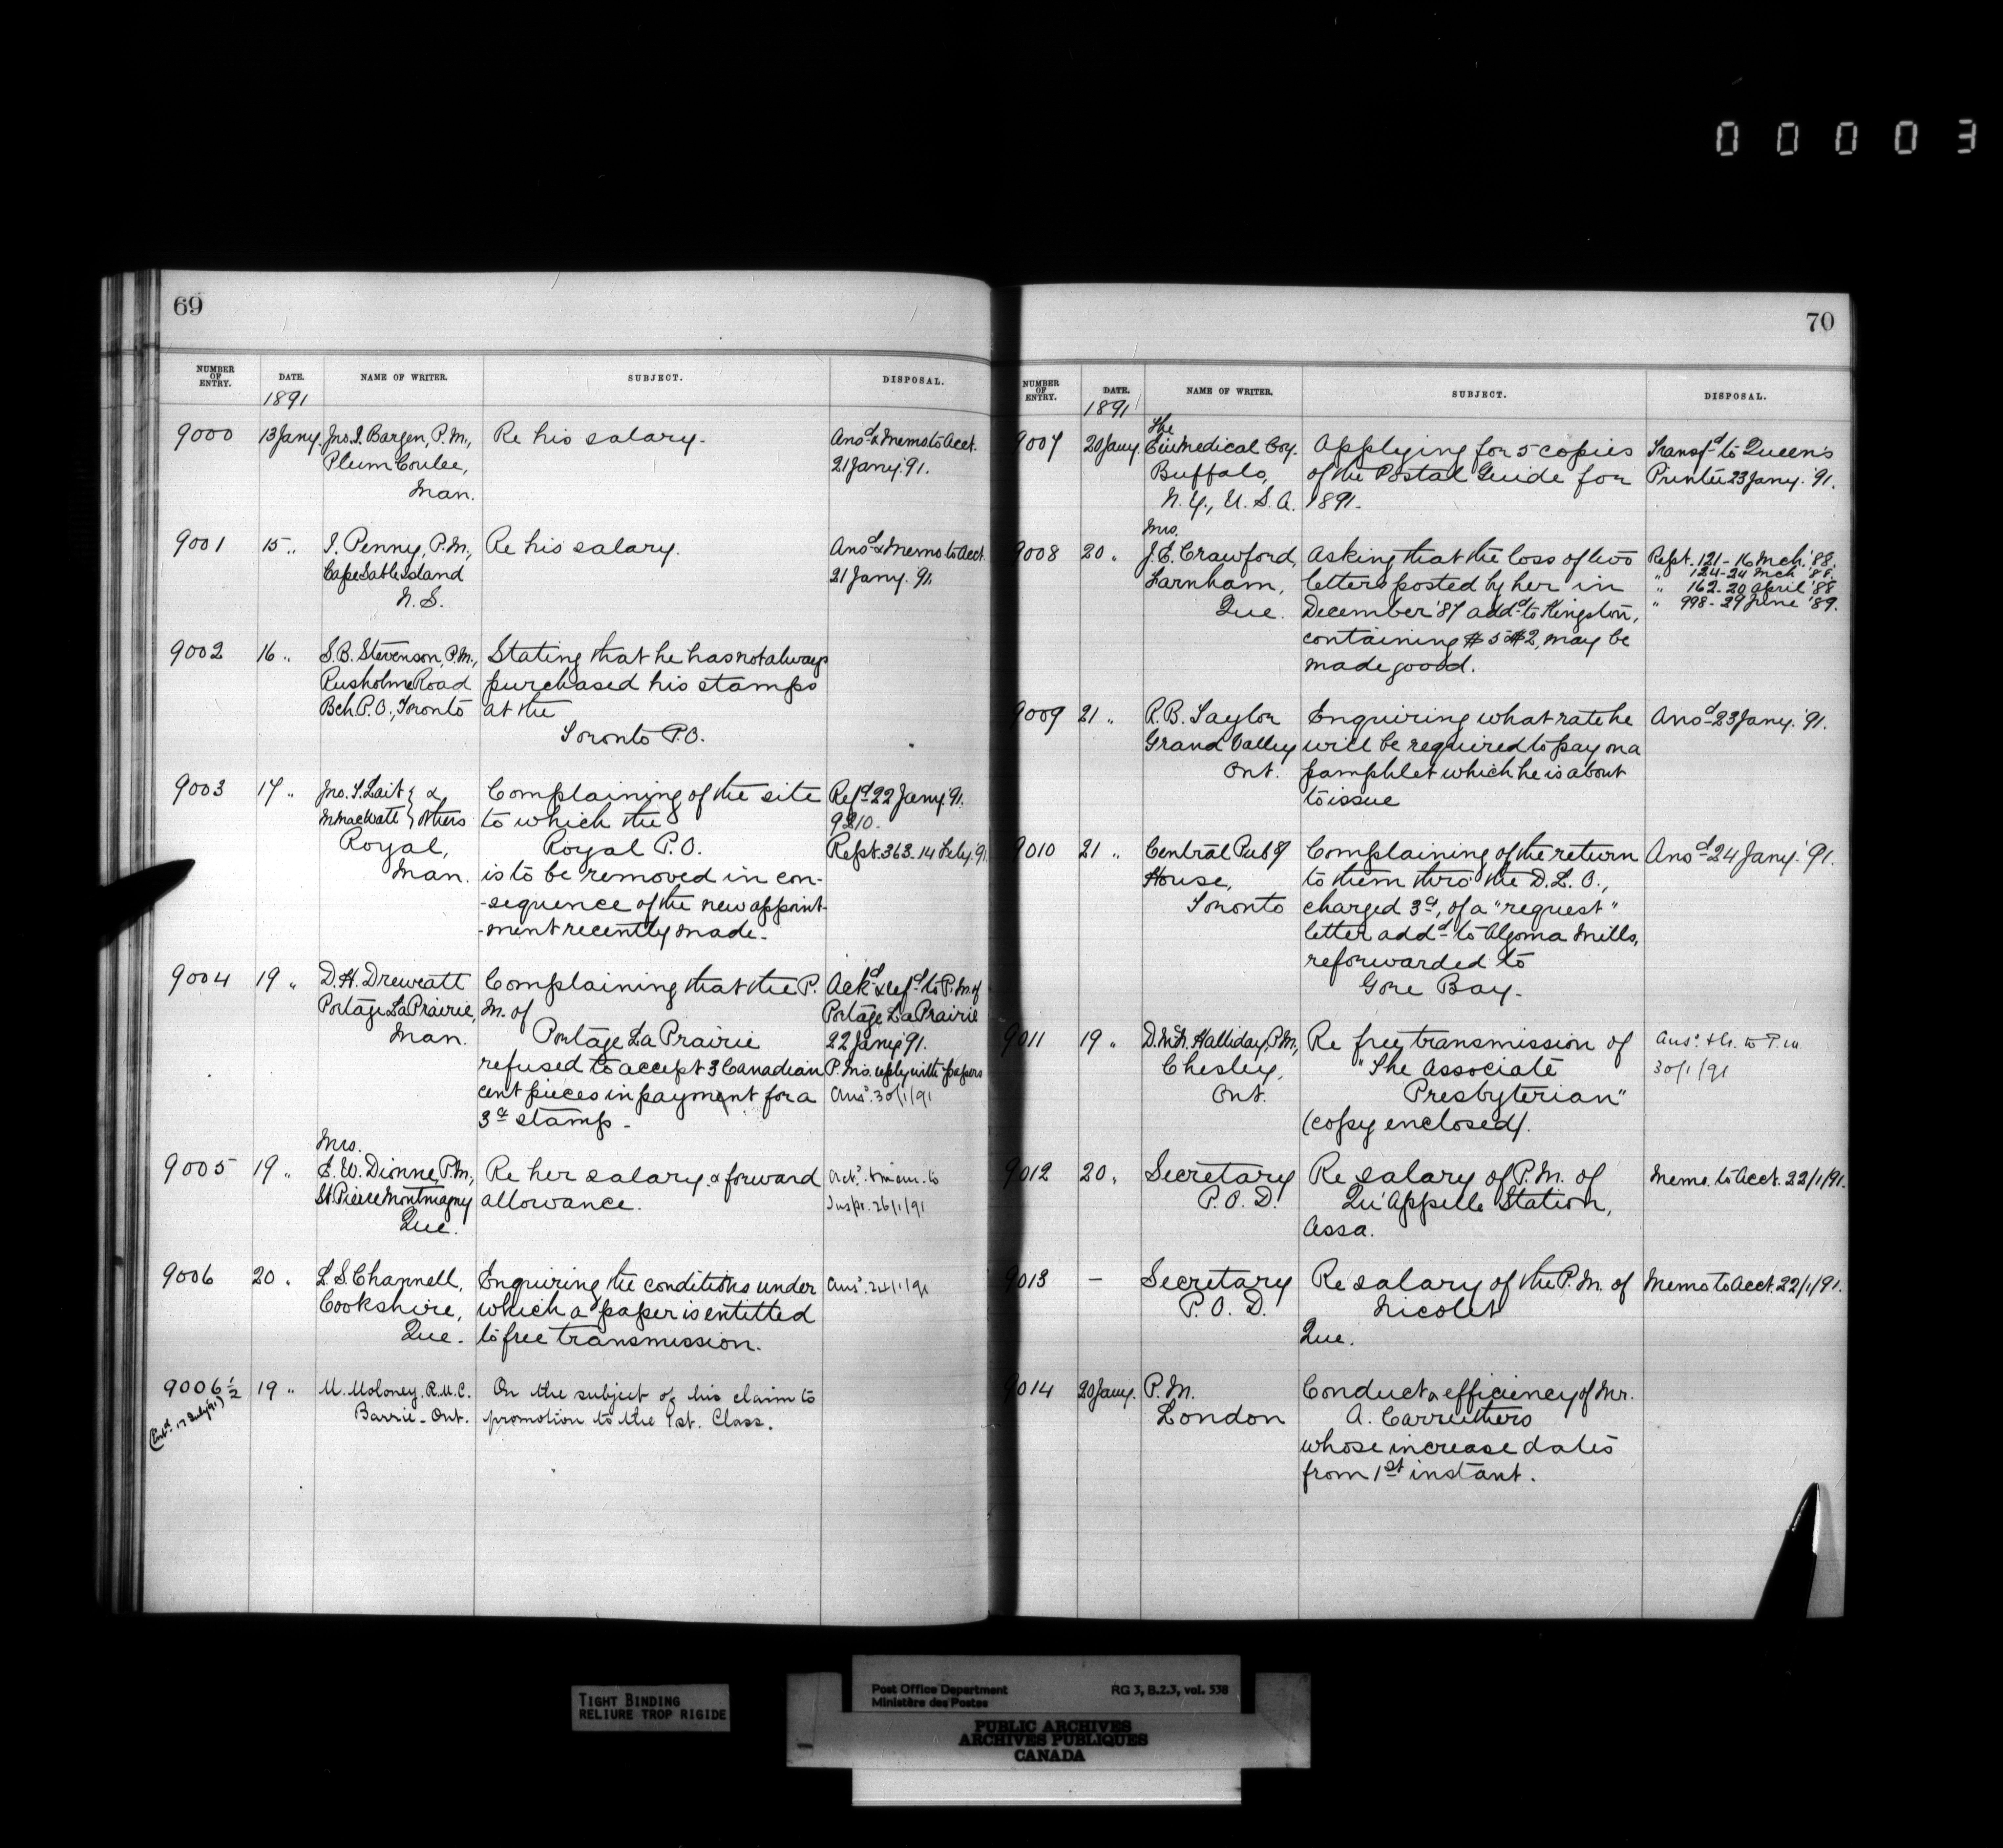 00003
69
NUMBER OF ENTRY. DATE. NAME OF WRITER. SUBJECT. DISPOSAL.
1891
9000 13 Jany. Jno. I. Bargen, P.M., Re his salary. Ansd & Memo to Acct.
Plum Coulee, 21 Jany. '91.
Man.
9001 15 " I. Penny, P.M., Re his salary. Ansd & Memo to Acct.
Cape Sable Island 21 Jany. '91.
N.S.
9002 16 " S.B. Stevenson, P.M., Stating that he has not always
Rusholme Road purchased his stamps
Bch P.O., Toronto at the
Toronto P.O.
9003 17 " Jno. T. Lait & Complaining of the site Refd 22 Jany '91.
others to which the 9210.
Royal, Royal P.O. Rept. 363-14 Feby '91
Man. is to be removed in con-
-sequence of the new appoint-
-ment recently made.
9004 19 " D.H. Dreweatt Complaining that the P. Ackd & refd to P.M. of
Portage La Prairie, M. of Portage La Prairie
Man. Portage La Prairie 22 Jany '91.
refused to accept 3 Canadian P.M's. reply with papers
cent pieces in payment for a Ansd. 30/1/91
3ct stamp.
Mrs.
9005 19 " E.W. Dionne, P.M., Re her salary & forward Actd. & mem. to
St. Pierre Montmagny allowance. Inspr. 26/1/91
Que.
9006 20 " L.S. Channell, Enquiring the conditions under Ansd. 24/1/91
Cookshire, which a paper is entitled
Que. to free transmission.
9006½ 19 " M. Moloney. R.M.C. On the subject of his claim to
(Entd 17 July '91) Barrie - Ont. promotion to the 1st. Class.
70
NUMBER OF ENTRY. DATE. NAME OF WRITER. SUBJECT. DISPOSAL.
1891
The
9007 20 Jany. Medical Coy. Applying for 5 copies Transfd to Queen's
Buffalo, of the Postal Guide for Printer 23 Jany. '91.
N.Y., U.S.A. 1891.
Mrs.
9008 20 " J.E. Crawford, Asking that the loss of two Rept. 121-16 Mch. '88.
Farnham, letters posted by her in " 124-24 Mch '88.
Que. December '87 addd to Kingston, " 162-20 April '88
containing $5 & $2, may be " 998-29 June '89.
made good.
9009 21 " R.B. Taylor Enquiring what rate he Ansd 23 Jany. '91.
Grand Valley will be required to pay on a
Ont. pamphlet which he is about
to issue
9010 21 " Central Pubg Complaining of the return Ansd 24 Jany. '91.
House, to them thro' the D.L.O.,
Toronto charged 3ct, of a "request"
letter addd to Algoma Mills,
reforwarded to
Gore Bay.
9011 19 " Halliday, P.M., Re free transmission of Ansd. thr. to P.M.
Chesley, "The Associate 30/1/91
Ont. Presbyterian"
(copy enclosed).
9012 20 " Secretary Re salary of P.M. of Memo. to Acct. 22/1/91.
P.O.D. Qu'Appelle Station,
Assa.
9013 — Secretary Re salary of the P.M. of Memo to Acct. 22/1/91.
P.O.D. Nicolet
Que.
9014 20 Jany. P.M. Conduct & efficiency of Mr.
London A. Carruthers
whose increase dates
from 1st instant.
TIGHT BINDING
RELIURE TROP RIGIDE
Post Office Department RG 3, B.2.3, vol. 538
Ministère des Postes
PUBLIC ARCHIVES
ARCHIVES PUBLIQUES
CANADA